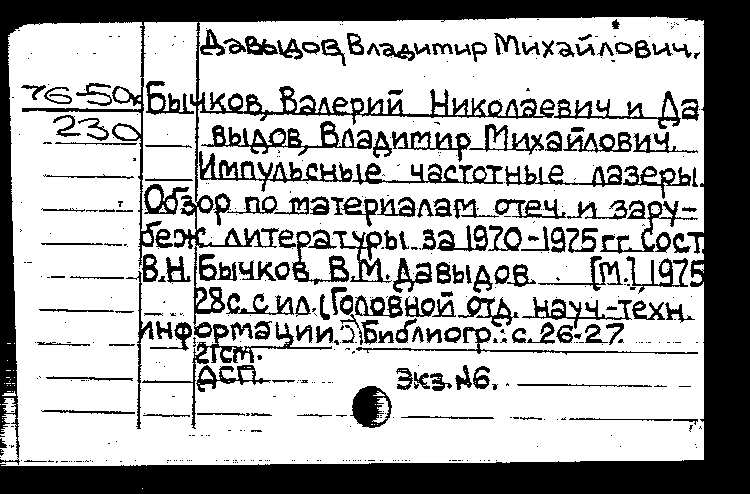 Давыдов, Владимир Михайлович.
76-50к Бычков, Валерий Николаевич и Да-
230 выдов, Владимир Михайлович.
Импульсные частотные лазеры.
Обзор по материалам отеч. и зару-
беж. литературы за 1970-1975 гг. Сост.
В.Н. Бычков, В.М. Давыдов. [М.], 1975
28с. с ил. (Головной отд. науч.-техн.
информации. ) Библиогр.: с. 26-27.
ДСП. Экз. №6.